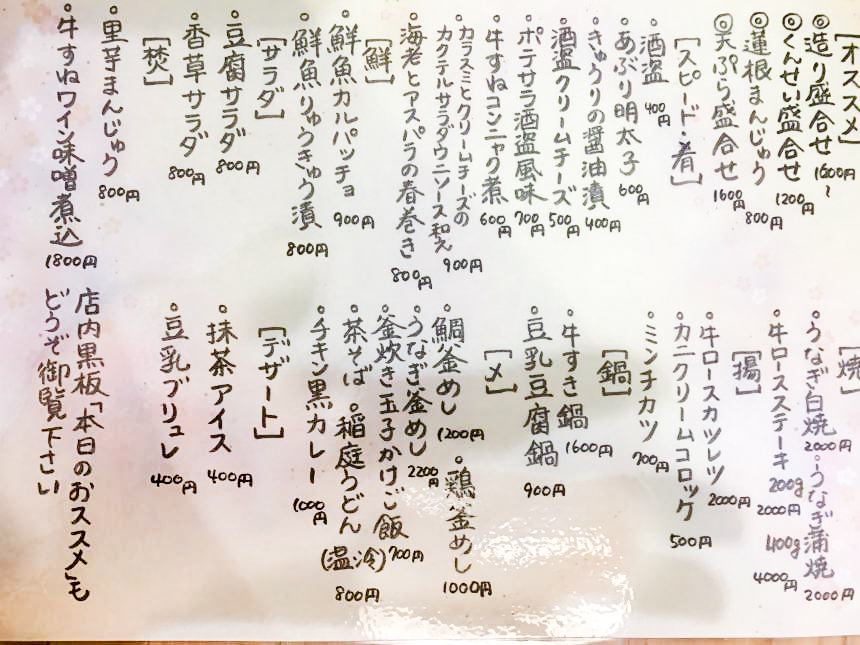 [オススメ]
◎造り盛合せ 1600円〜
◎くんせい盛合せ 1200円
◎蓮根まんじゅう 800円
◎天ぷら盛合せ 1600円
[スピード・肴]
・酒盗 400円
・あぶり明太子 600円
・きゅうりの醤油漬 400円
・酒盗クリームチーズ 500円
・ポテサラ酒盗風味 700円
・牛すねコンニャク煮 600円
・カラスミとクリームチーズの
カクテルサラダウニソース和え 900円
・海老とアスパラの春巻き 800円
[鮮]
・鮮魚カルパッチョ 900円
・鮮魚りゅうきゅう漬 800円
[サラダ]
・豆腐サラダ 800円
・香草サラダ 800円
[焚]
・里芋まんじゅう 800円
・牛すねワイン味噌煮込 1800円
[焼]
・うなぎ白焼 2000円 ・うなぎ蒲焼 2000円
・牛ロースステーキ 200g 2000円 400g 4000円
[揚]
・牛ロースカツレツ 2000円
・カニクリームコロッケ 500円
・ミンチカツ 700円
[鍋]
・牛すき鍋 1600円
・豆乳豆腐鍋 900円
[〆]
・鯛釜めし 1200円 ・鶏釜めし 1000円
・うなぎ釜めし 2200円
・釜炊き玉子かけご飯 700円
・茶そば。稲庭うどん(温冷) 800円
・チキン黒カレー 1000円
[デザート]
・抹茶アイス 400円
・豆乳ブリュレ 400円
店内黒板「本日のおススメ」も
どうぞ御覧下さい